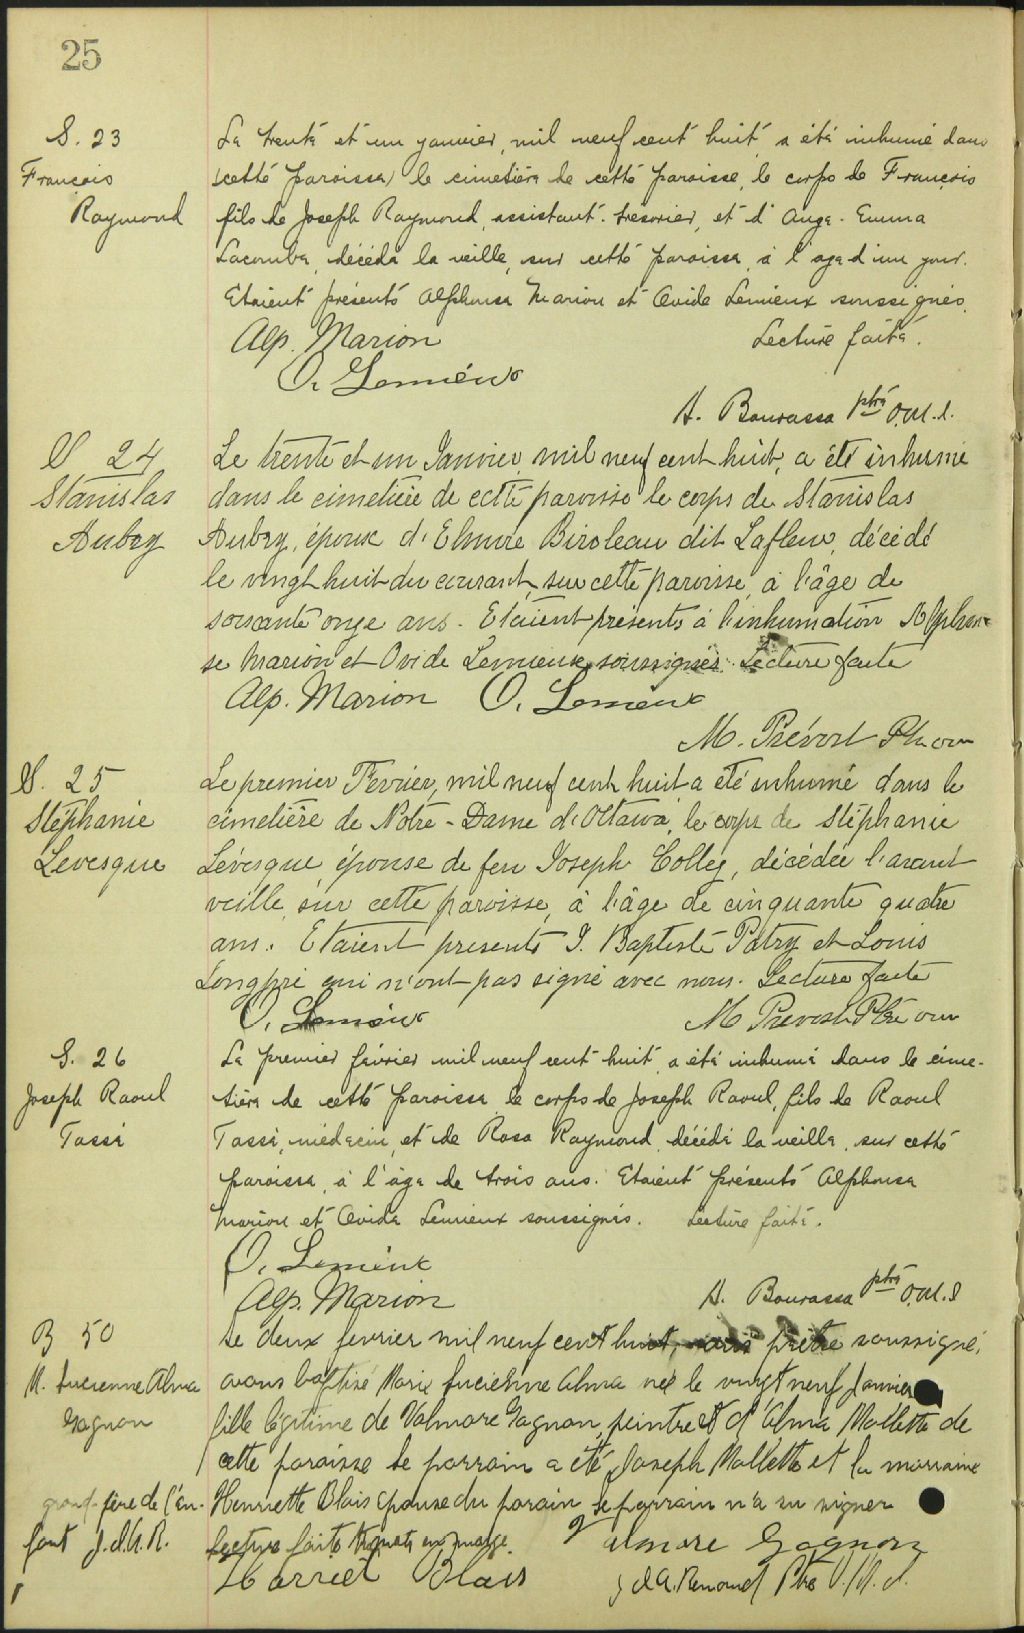 25
S. 23
François
Raymond
Le trente et un janvier, mil neuf cent huit a été inhumé dans
(cette paroisse) le cimetière de cette paroisse, le corps de François
fils de Joseph Raymond, assistant-trésorier, et d'Ange-Emma
Lacombe, décédé la veille, sur cette paroisse, à l'age d'un jour.
Etaient présents Alphonse Marion et Ovide Lemieux soussignés.
Alp. Marion
Lecture faite.
O. Lemieux
A. Bourassa ptre O.M.I.
S 24
Stanislas
Aubry
Le trente et un Janvier, mil neuf cent huit, a été inhumé
dans le cimetière de cette paroisse le corps de Stanislas
Aubry, époux d'Elmire Biroleau dit Lafleur, décédé
le vingt huit du courant, sur cette paroisse, à l'âge de
soixante onze ans. Etaient présents à l'inhumation Alphon-
se Marion et Ovide Lemieux soussignés. Lecture faite
Alp. Marion O. Lemieux
M. Prévost Ptre omi
S. 25
Stéphanie
Levesque
Le premier Février, mil neuf cent huit a été inhumé dans le
cimetière de Notre-Dame d'Ottawa, le corps de Stéphanie
Lévesque épouse de feu Joseph Colleg, décédée l'avant
veille, sur cette paroisse, à l'âge de cinquante quatre
ans. Etaient presents J. Baptiste Patry et Louis
Longpré qui n'ont pas signé avec nous. Lecture faite
O. Lemieux
M Prevost Ptre omi
S. 26
Joseph Raoul
Tassé
Le premier février mil neuf cent huit, a été inhumé dans le cime-
tière de cette paroisse le corps de Joseph Raoul, fils de Raoul
Tassé, médecin, et de Rosa Raymond, décédé la veille, sur cette
paroisse, à l'âge de trois ans. Etaient présents Alphonse
Marion et Ovide Lemieux soussignés. Lecture faite.
O. Lemieux
Alp. Marion
A. Bourassa ptre O.M.I
B 50
M. Lucienne Alma
Gagnon
Le deux fevrier mil neuf cent huit, nous prêtre soussigné,
avons baptisé Marie Lucienne Alma née le vingt neuf Janvier
fille légitime de Valmore Gagnon, peintre et d'Alma Mallette de
cette paroisse Le parrain a été Joseph Mallette et la marraine
Henriette Blais épouse du parain Le parrain n'a su signer
grand-père de l'en-
fant J.d.A.R.
Lecture faite en marge.
Valmore Gagnon
Harriet Blais
J d A. Renaud Ptre O.M.I.